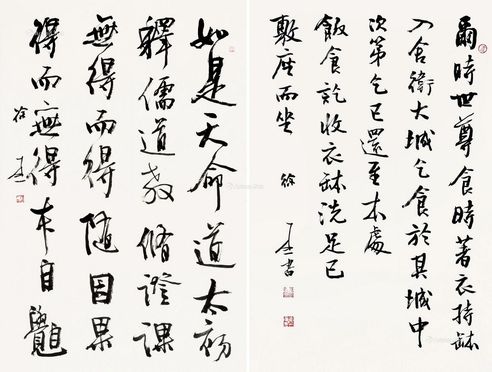 爾時世尊食時著衣持鉢
入舍衛大城乞食於其城中
次第乞已還至本處
飯食訖收衣鉢洗足已
敷座而坐
徐 書
如是天命道太初
釋儒道教脩證課
無得而得隨因果
得而無得本自覺
徐